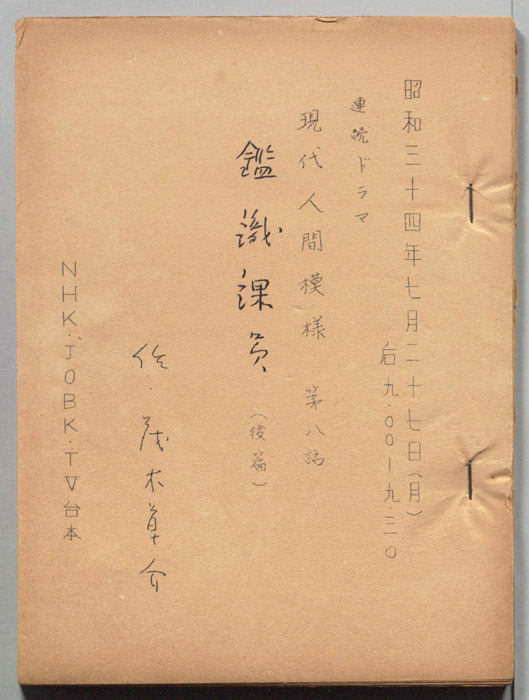 昭和三十四年七月二十七日(月)
后九.〇〇ー九.三〇
連続ドラマ
現代人間模様 第八話
鑑識課員
(後篇)
作.茂木草介
NHK.JOBK.TV台本